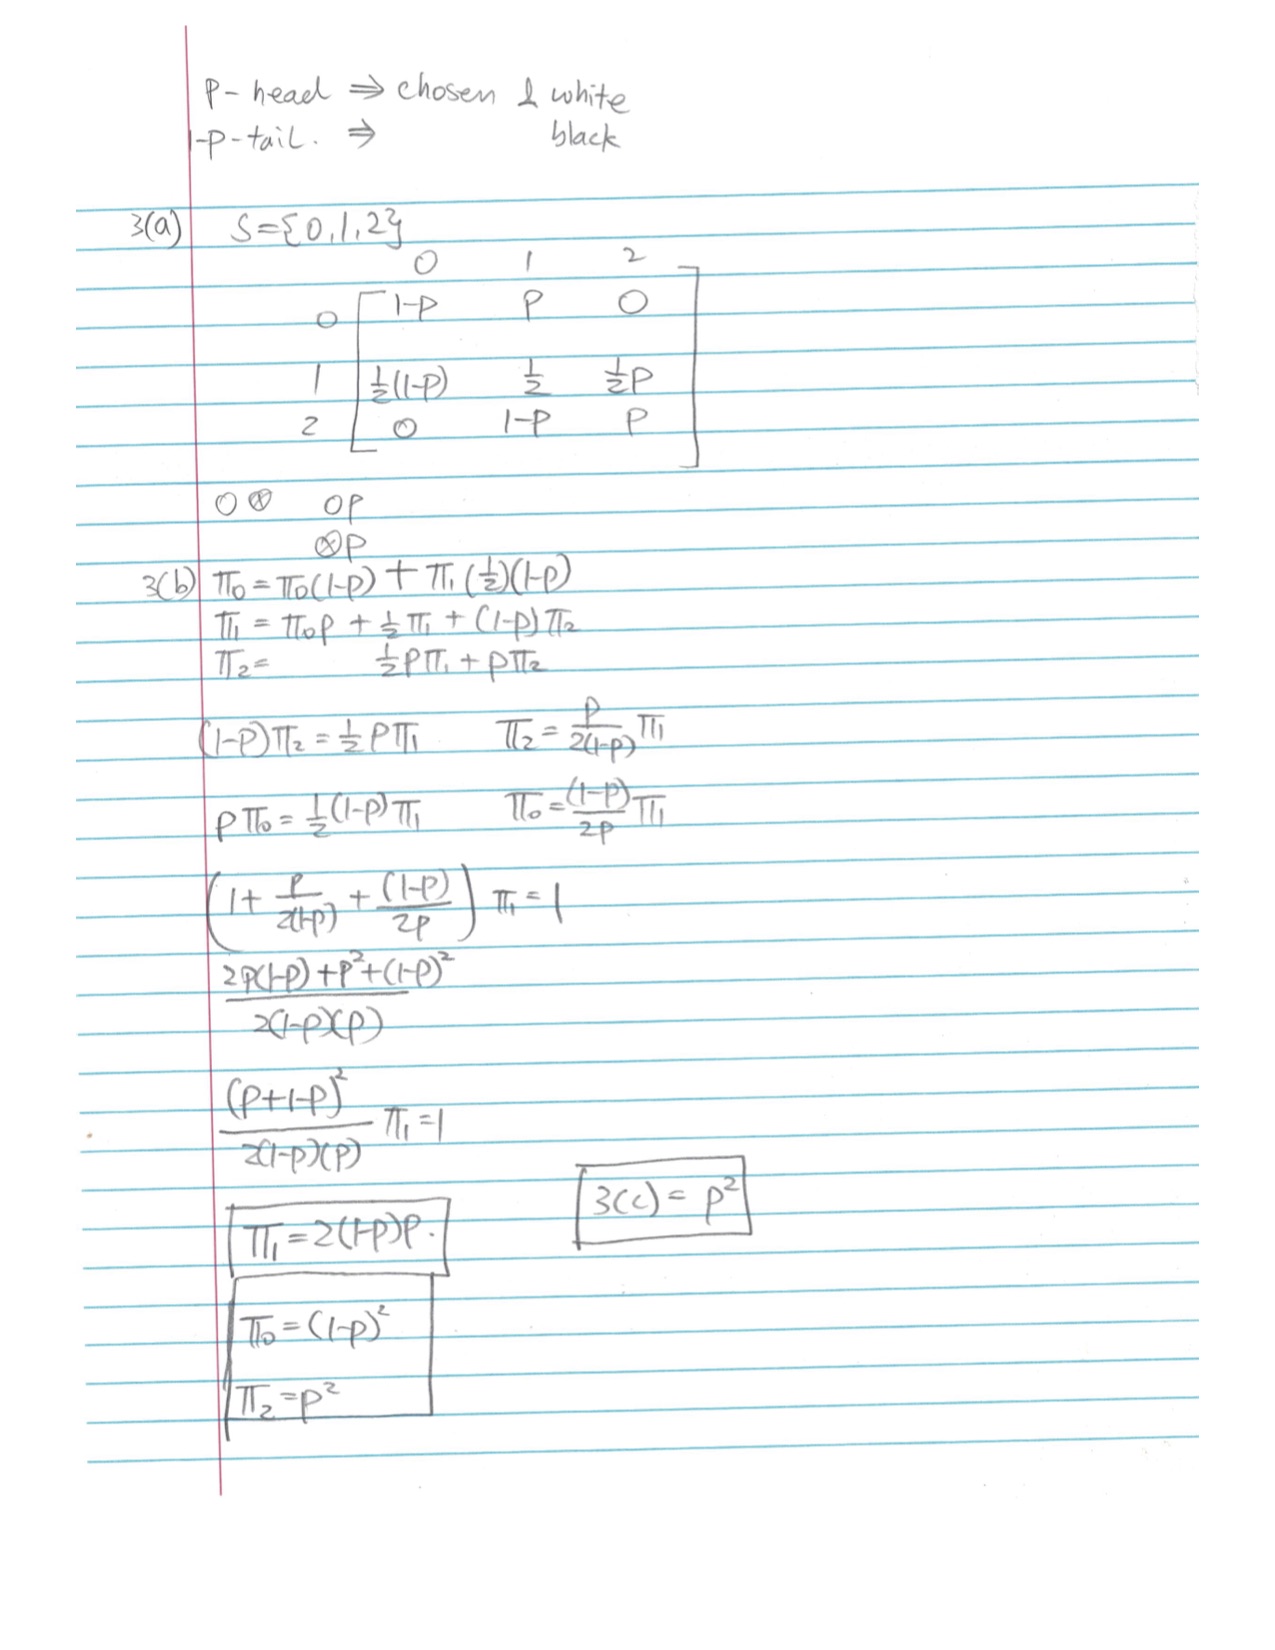 P - head ⇒ chosen & white
1-p-tail. ⇒ black
3(a) S={0,1,2}
0 1 2
0 1-p p 0
1 ½(1-p) ½ ½p
2 0 1-p p
○ ⊗ ○p
⊗p
3(b) π₀ = π₀(1-p) + π₁(½)(1-p)
π₁ = π₀p + ½π₁ + (1-p)π₂
π₂ = ½pπ₁ + pπ₂
(1-p)π₂ = ½pπ₁ π₂ = p/2(1-p) π₁
pπ₀ = ½(1-p)π₁ π₀ = (1-p)/2p π₁
(1 + p/2(1-p) + (1-p)/2p) π₁ = 1
2p(1-p)+p²+(1-p)²
2(1-p)(p)
(p+1-p)²/2(1-p)(p) π₁ = 1
3(c) = p²
π₁ = 2(1-p)p.
π₀ = (1-p)²
π₂ = p²